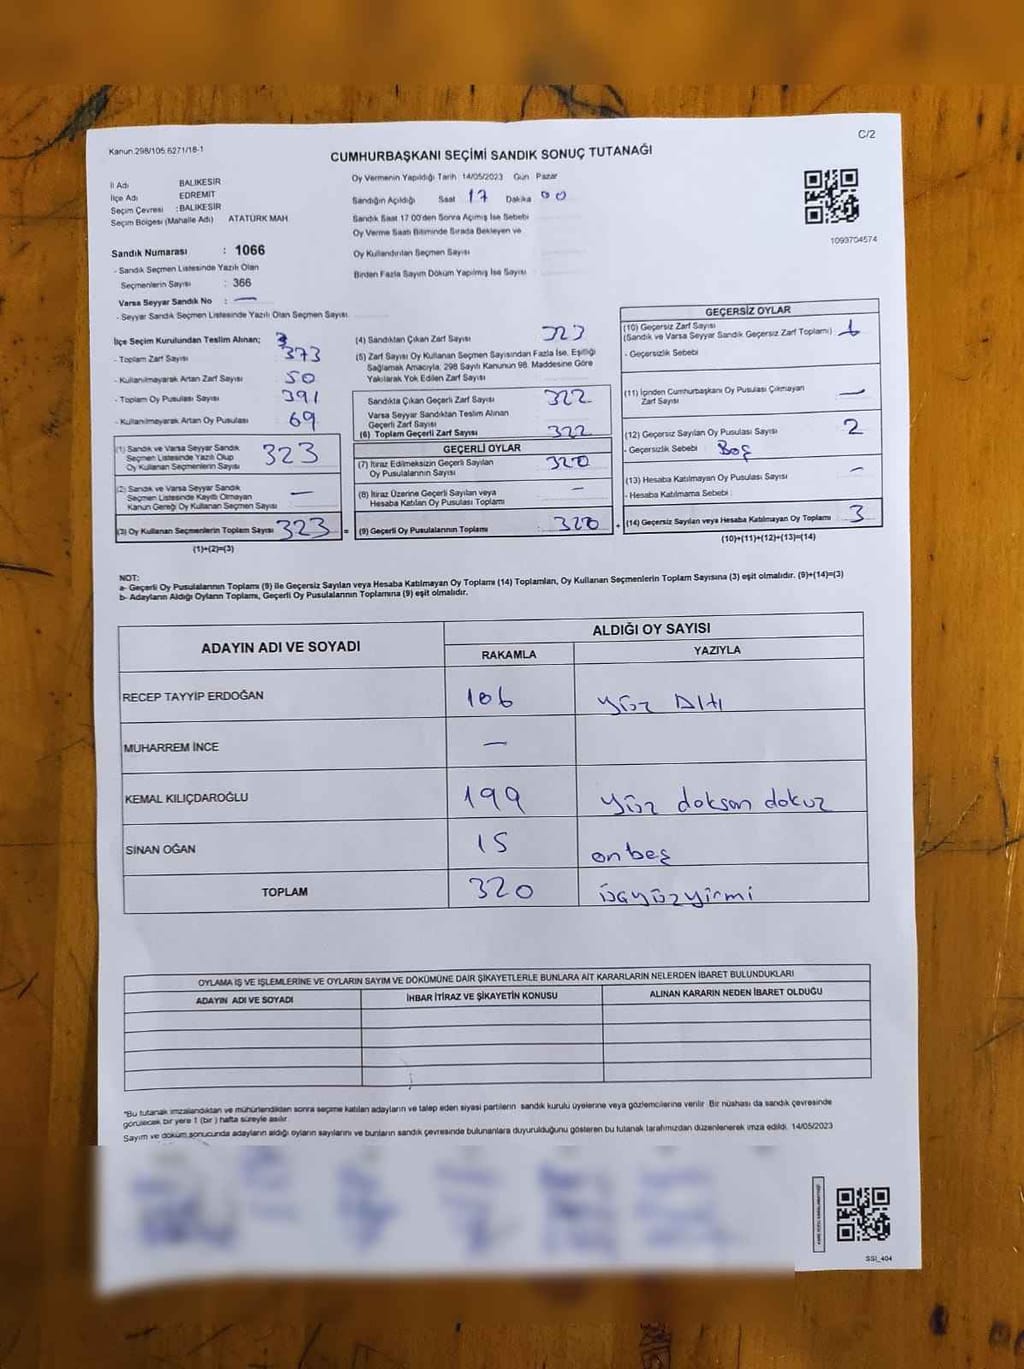 Kanun 298/105 6271/18-1
C/2
CUMHURBAŞKANI SEÇİMİ SANDIK SONUÇ TUTANAĞI
İl Adı BALIKESİR
İlçe Adı EDREMİT
Seçim Çevresi : BALIKESİR
Seçim Bölgesi (Mahalle Adı) ATATÜRK MAH.
Sandık Numarası : 1066
- Sandık Seçmen Listesinde Yazılı Olan
Seçmenlerin Sayısı : 366
Varsa Seyyar Sandık No : —
- Seyyar Sandık Seçmen Listesinde Yazılı Olan Seçmen Sayısı
Oy Vermenin Yapıldığı Tarih 14/05/2023 Gün Pazar
Sandığın Açıldığı Saat 17 Dakika 00
Sandık Saat 17.00'den Sonra Açılmış İse Sebebi
Oy Verme Saati Bitiminde Sırada Bekleyen ve
Oy Kullandırılan Seçmen Sayısı
Birden Fazla Sayım Döküm Yapılmış İse Sayısı
1093704574
İlçe Seçim Kurulundan Teslim Alınan;
- Toplam Zarf Sayısı 373
- Kullanılmayarak Artan Zarf Sayısı 50
- Toplam Oy Pusulası Sayısı 391
- Kullanılmayarak Artan Oy Pusulası 69
(1) Sandık ve Varsa Seyyar Sandık
Seçmen Listesinde Yazılı Olup
Oy Kullanan Seçmenlerin Sayısı 323
(2) Sandık ve Varsa Seyyar Sandık
Seçmen Listesinde Kayıtlı Olmayan
Kanun Gereği Oy Kullanan Seçmen Sayısı —
(3) Oy Kullanan Seçmenlerin Toplam Sayısı 323 =
(1)+(2)=(3)
(4) Sandıktan Çıkan Zarf Sayısı 323
(5) Zarf Sayısı Oy Kullanan Seçmen Sayısından Fazla İse, Eşitliği
Sağlamak Amacıyla, 298 Sayılı Kanunun 98. Maddesine Göre
Yakılarak Yok Edilen Zarf Sayısı
Sandıkta Çıkan Geçerli Zarf Sayısı 322
Varsa Seyyar Sandıktan Teslim Alınan
Geçerli Zarf Sayısı
(6) Toplam Geçerli Zarf Sayısı 322
GEÇERLİ OYLAR
(7) İtiraz Edilmeksizin Geçerli Sayılan
Oy Pusulalarının Sayısı 320
(8) İtiraz Üzerine Geçerli Sayılan veya
Hesaba Katılan Oy Pusulası Toplamı —
(9) Geçerli Oy Pusulalarının Toplamı : 320 +
GEÇERSİZ OYLAR
(10) Geçersiz Zarf Sayısı
(Sandık ve Varsa Seyyar Sandık Geçersiz Zarf Toplamı) 1
- Geçersizlik Sebebi
(11) İçinden Cumhurbaşkanı Oy Pusulası Çıkmayan
Zarf Sayısı —
(12) Geçersiz Sayılan Oy Pusulası Sayısı 2
- Geçersizlik Sebebi Boş
(13) Hesaba Katılmayan Oy Pusulası Sayısı —
- Hesaba Katılmama Sebebi :
(14) Geçersiz Sayılan veya Hesaba Katılmayan Oy Toplamı 3
(10)+(11)+(12)+(13)=(14)
NOT:
a- Geçerli Oy Pusulalarının Toplamı (9) ile Geçersiz Sayılan veya Hesaba Katılmayan Oy Toplamı (14) Toplamları, Oy Kullanan Seçmenlerin Toplam Sayısına (3) eşit olmalıdır. (9)+(14)=(3)
b- Adayların Aldığı Oyların Toplamı, Geçerli Oy Pusulalarının Toplamına (9) eşit olmalıdır.
ADAYIN ADI VE SOYADI
ALDIĞI OY SAYISI
RAKAMLA YAZIYLA
RECEP TAYYİP ERDOĞAN 106 yüz Altı
MUHARREM İNCE —
KEMAL KILIÇDAROĞLU 199 yüz doksan dokuz
SİNAN OĞAN 15 onbeş
TOPLAM 320 üçyüzyirmi
OYLAMA İŞ VE İŞLEMLERİNE VE OYLARIN SAYIM VE DÖKÜMÜNE DAİR ŞİKAYETLERLE BUNLARA AİT KARARLARIN NELERDEN İBARET BULUNDUKLARI
ADAYIN ADI VE SOYADI İHBAR İTİRAZ VE ŞİKAYETİN KONUSU ALINAN KARARIN NEDEN İBARET OLDUĞU
*Bu tutanak imzalandıktan ve mühürlendikten sonra seçime katılan adayların ve talep eden siyasi partilerin sandık kurulu üyelerine veya gözlemcilerine verilir. Bir nüshası da sandık çevresinde
görülecek bir yere 1 (bir) hafta süreyle asılır.
Sayım ve döküm sonucunda adayların aldığı oyların sayılarını ve bunların sandık çevresinde bulunanlara duyurulduğunu gösteren bu tutanak tarafımızdan düzenlenerek imza edildi. 14/05/2023
SSI_404